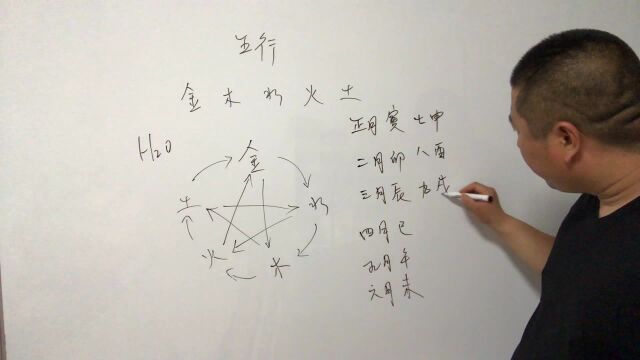 五行
金 木 水 火 土
H2O
金
土 水
火 木
正月寅 七申
二月卯 八酉
三月辰 九戌
四月巳
五月午
六月未